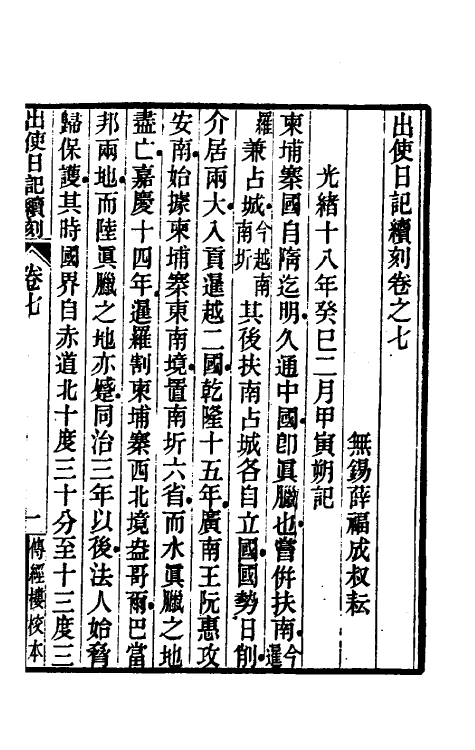 出使日記續刻卷之七
無錫薛福成叔耘
光緒十八年癸巳二月甲寅朔記
柬埔寨國自隋迄明久通中國卽眞臘也嘗併扶南今暹
羅兼占城今越南南圻其後扶南占城各自立國國勢日削
介居兩大入貢暹越二國乾隆十五年廣南王阮惠攻
安南始據柬埔寨東南境置南圻六省而水眞臘之地
盡亡嘉慶十四年暹羅割柬埔寨西北境盎哥爾巴當
邦兩地而陸眞臘之地亦蹙同治三年以後法人始脅
歸保護其時國界自赤道北十度三十分至十三度三
出使日記續刻 卷七 一 傳經樓校本